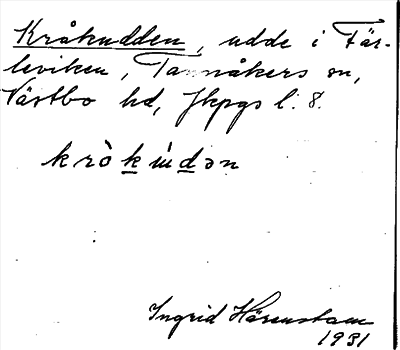 Kråkudden, udde i Fär-
leviken, Tannåkers sn,
Västbo hd, Jkpgs l. 8.
kròkúdən
Ingrid Härenstam
1931